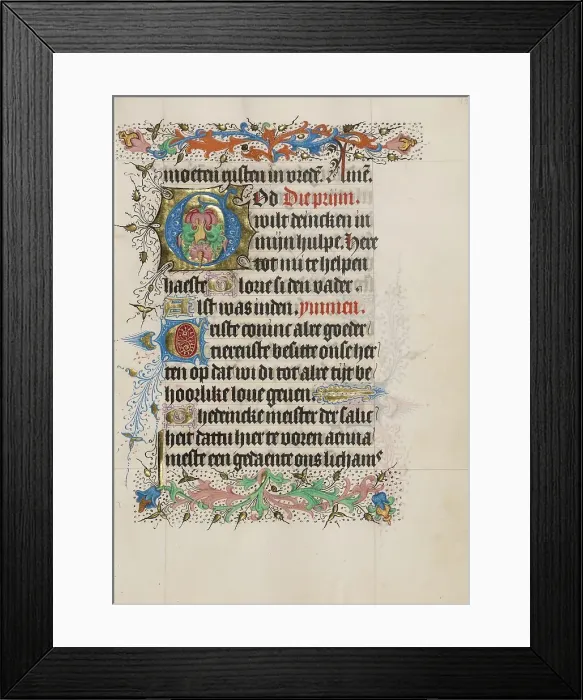 moeten rusten in vrede. Amē.
God Die prijm.
wilt deincken in
mijn hulpe. Here
tot mi te helpen
haeste Glorie si den vader.
Alst was inden. ymmen.
Criste coninc alre goeder
tierenste besitte onse her
ten op dat wi di tot alre tijt be
hoorlike loue geuen.
Ghedencke meister der salic
heit dattu hier te voren aenna
meste een gedaente ons lichams